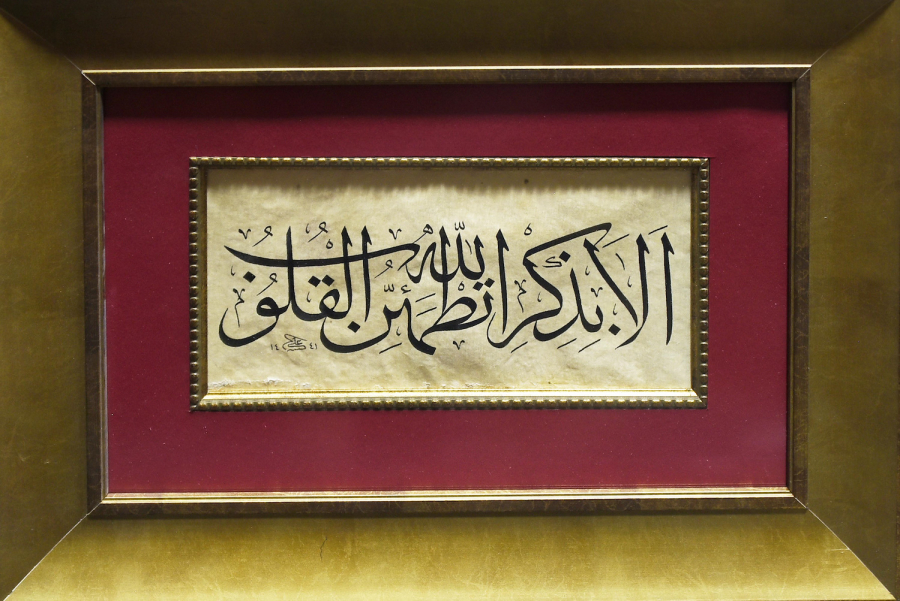 أَلَا بِذِكْرِ اللّٰهِ تَطْمَئِنُّ الْقُلُوبُ
١٤٤١